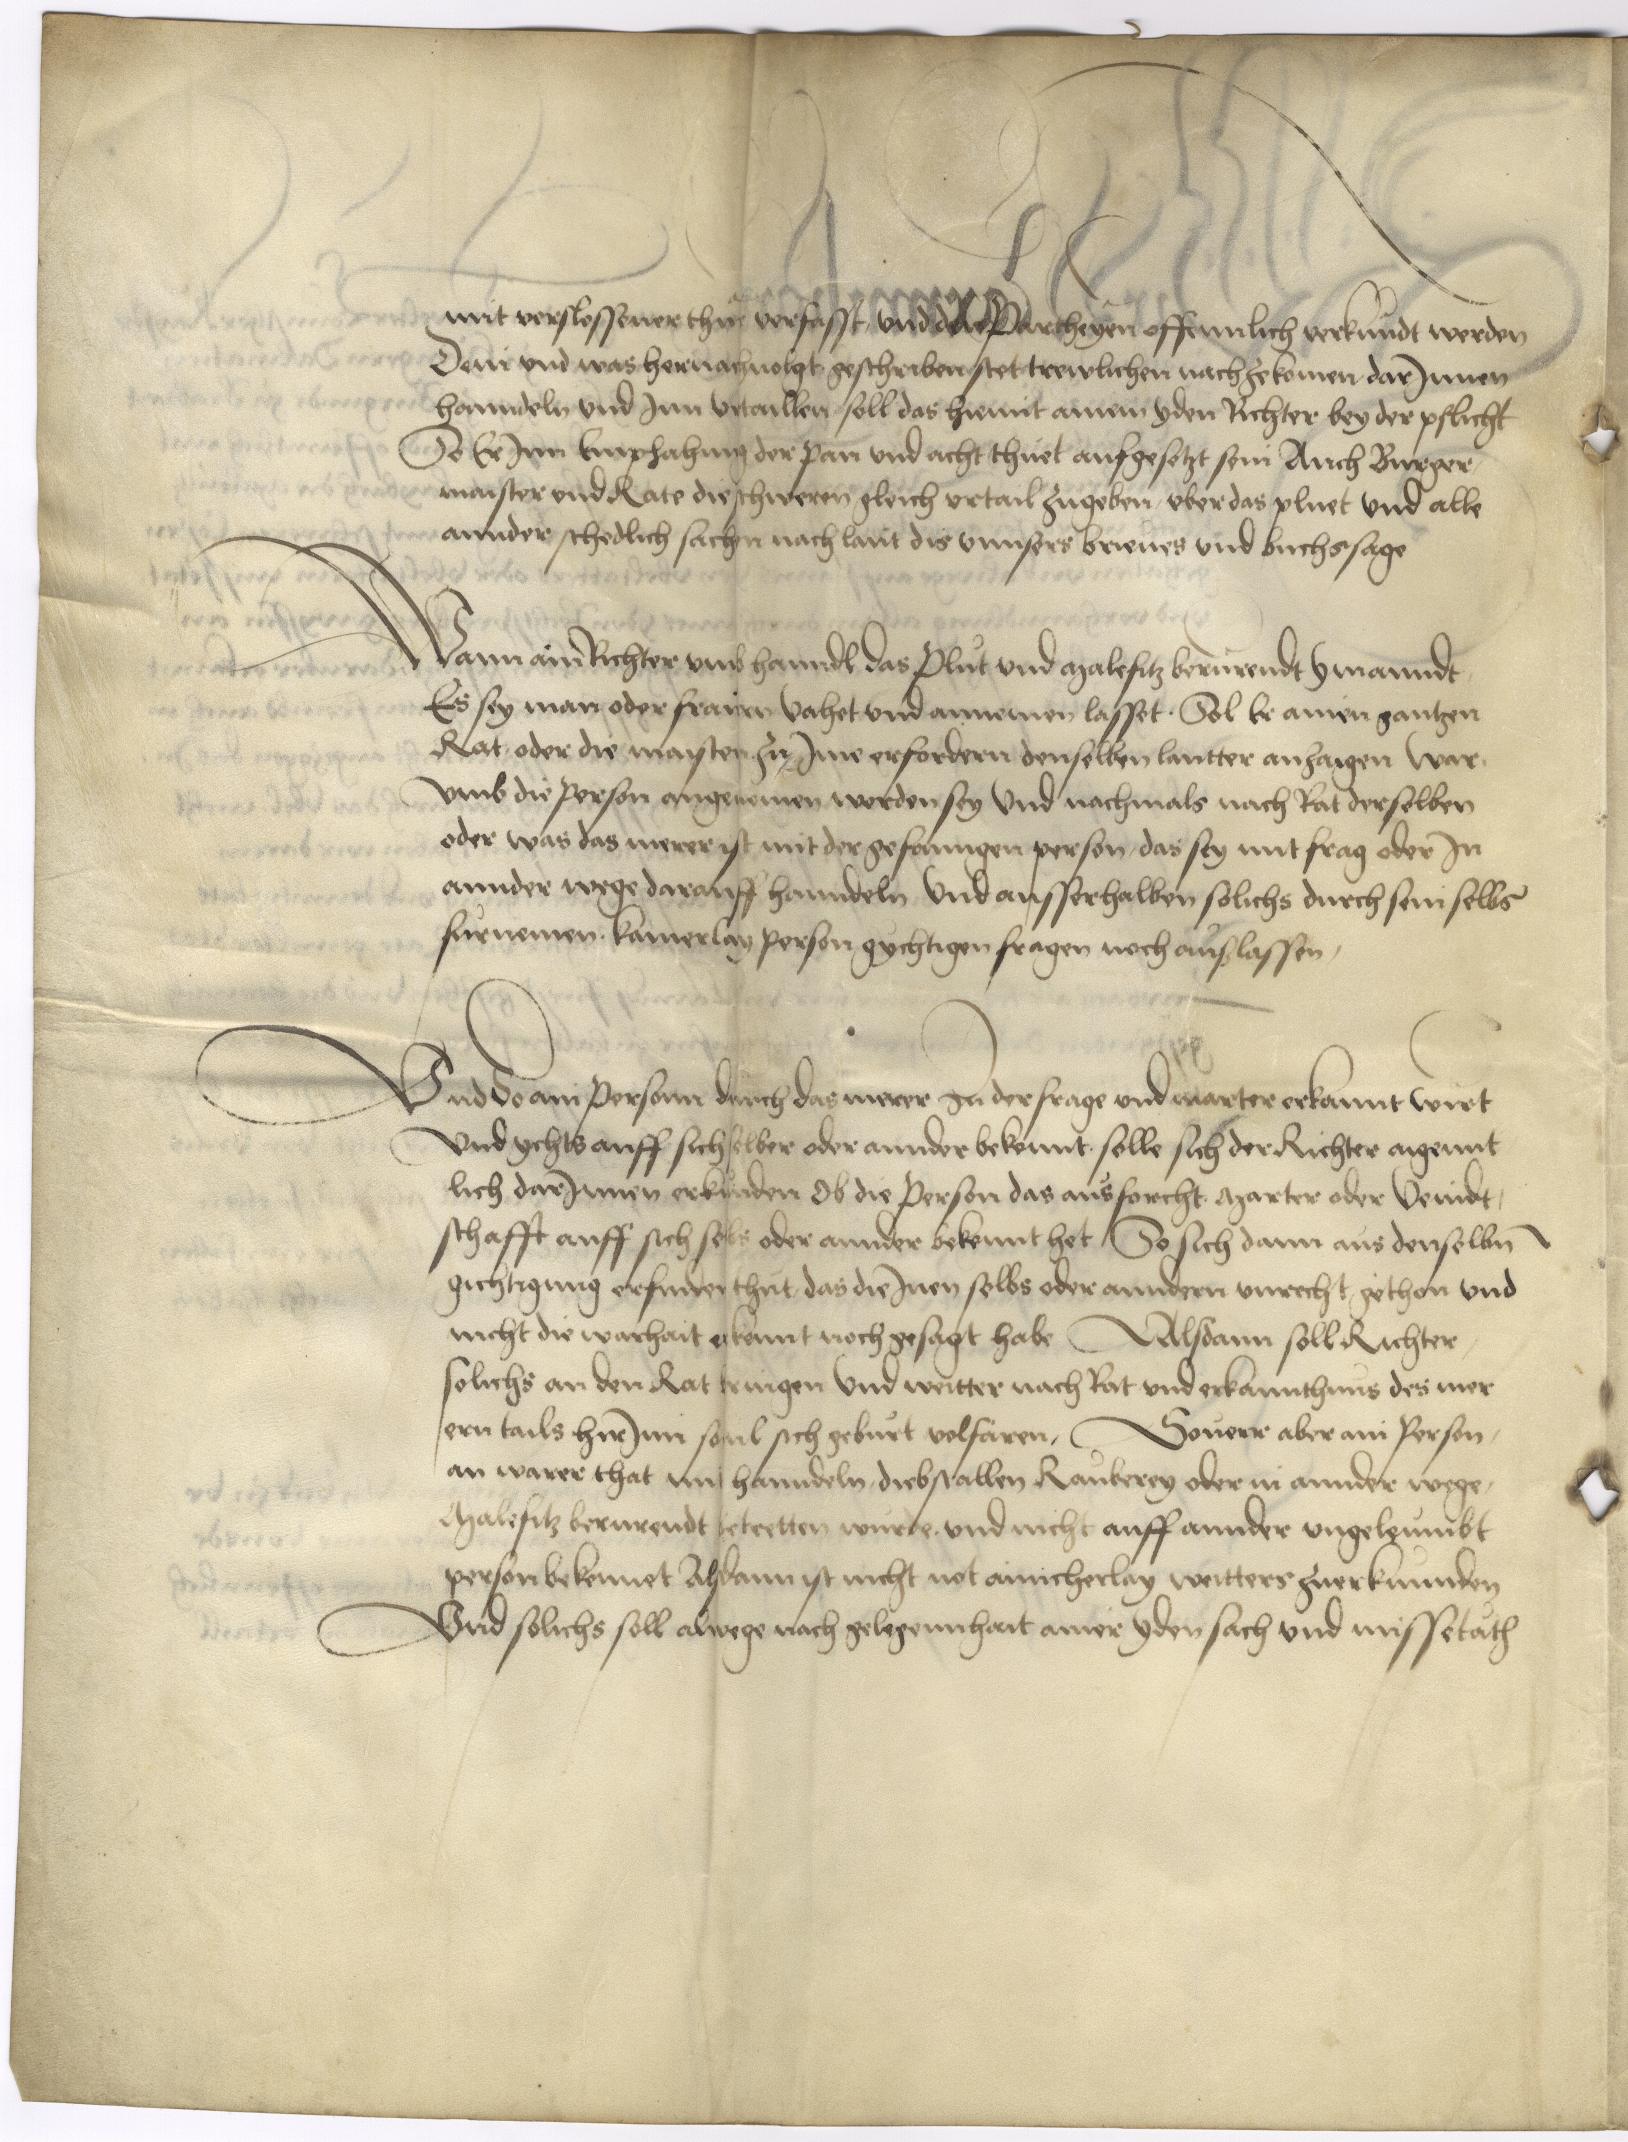 mit verslossener thür verfasst, und den Partheyen offennlich verkundt werden
Dem und was hernachuolgt geschriben stet trewlichen nachzekomen darJnnen
hanndeln und Jnn vrtaillen soll das hiemit ainem yden Richter bey der pflicht
So Er Jnn Emphahung der pan und acht thuet aufgesetzt sein Auch Burger
maister und Rate die schweren gleich vrtail zugeben, vber das pluet und alle
annder schedlich sachen nach laut dis unnsers brieues und buchs sage
Wann ain Richter vmb hanndl das Plut und Malefitz berürendt ymanndt
Es sey man oder frawen vahet und annemen lasset. Sol Er ainen gantzen
Rat, oder die maisten zu Jme erfordern denselben lautter anzaigen war
vmb die person angenomen worden sey Und nachmals nach Rat derselben
oder was das merer ist mit der gefanngen person, das sey mit frag oder Jn
annder wege darauff hanndeln Und ausserhalben solichs durch sein selbs
fürnemen kainerlay person gychtigen fragen noch auslassen,
Und So ain Personn durch das merer zu der frage und marter erkannt wirt
Und ychts auff sich selber oder annder bekennt. solle sich der Richter aigennt
lich darJnnen erkunden Ob die Person das aus forcht Marter oder Veindt,
schafft auff sich selbs oder annder bekennt het So sich dann aus denselbn
gichtigung erfinden thut, das die Jnen selbs oder anndern unrecht gethon und
nicht die warhait erkennt noch gesagt habe Alsdann soll Richter,
solichs an den Rat bringen Und weitter nach Rat und erkanntnus des mer
ern tails hirJnn souil sich geburt volfaren, Souerr aber ain Person,
an warer that mit hanndeln, diebstallen Rauberey oder in annder wege,
Malefitz berurendt betretten wurde, und nicht auff annder ungeleumbt
person bekennet Alsdann ist nicht not ainicherlay weitters zuerkunnden
Und solichs soll alwege nach gelegennhait ainer yden sach und missetath